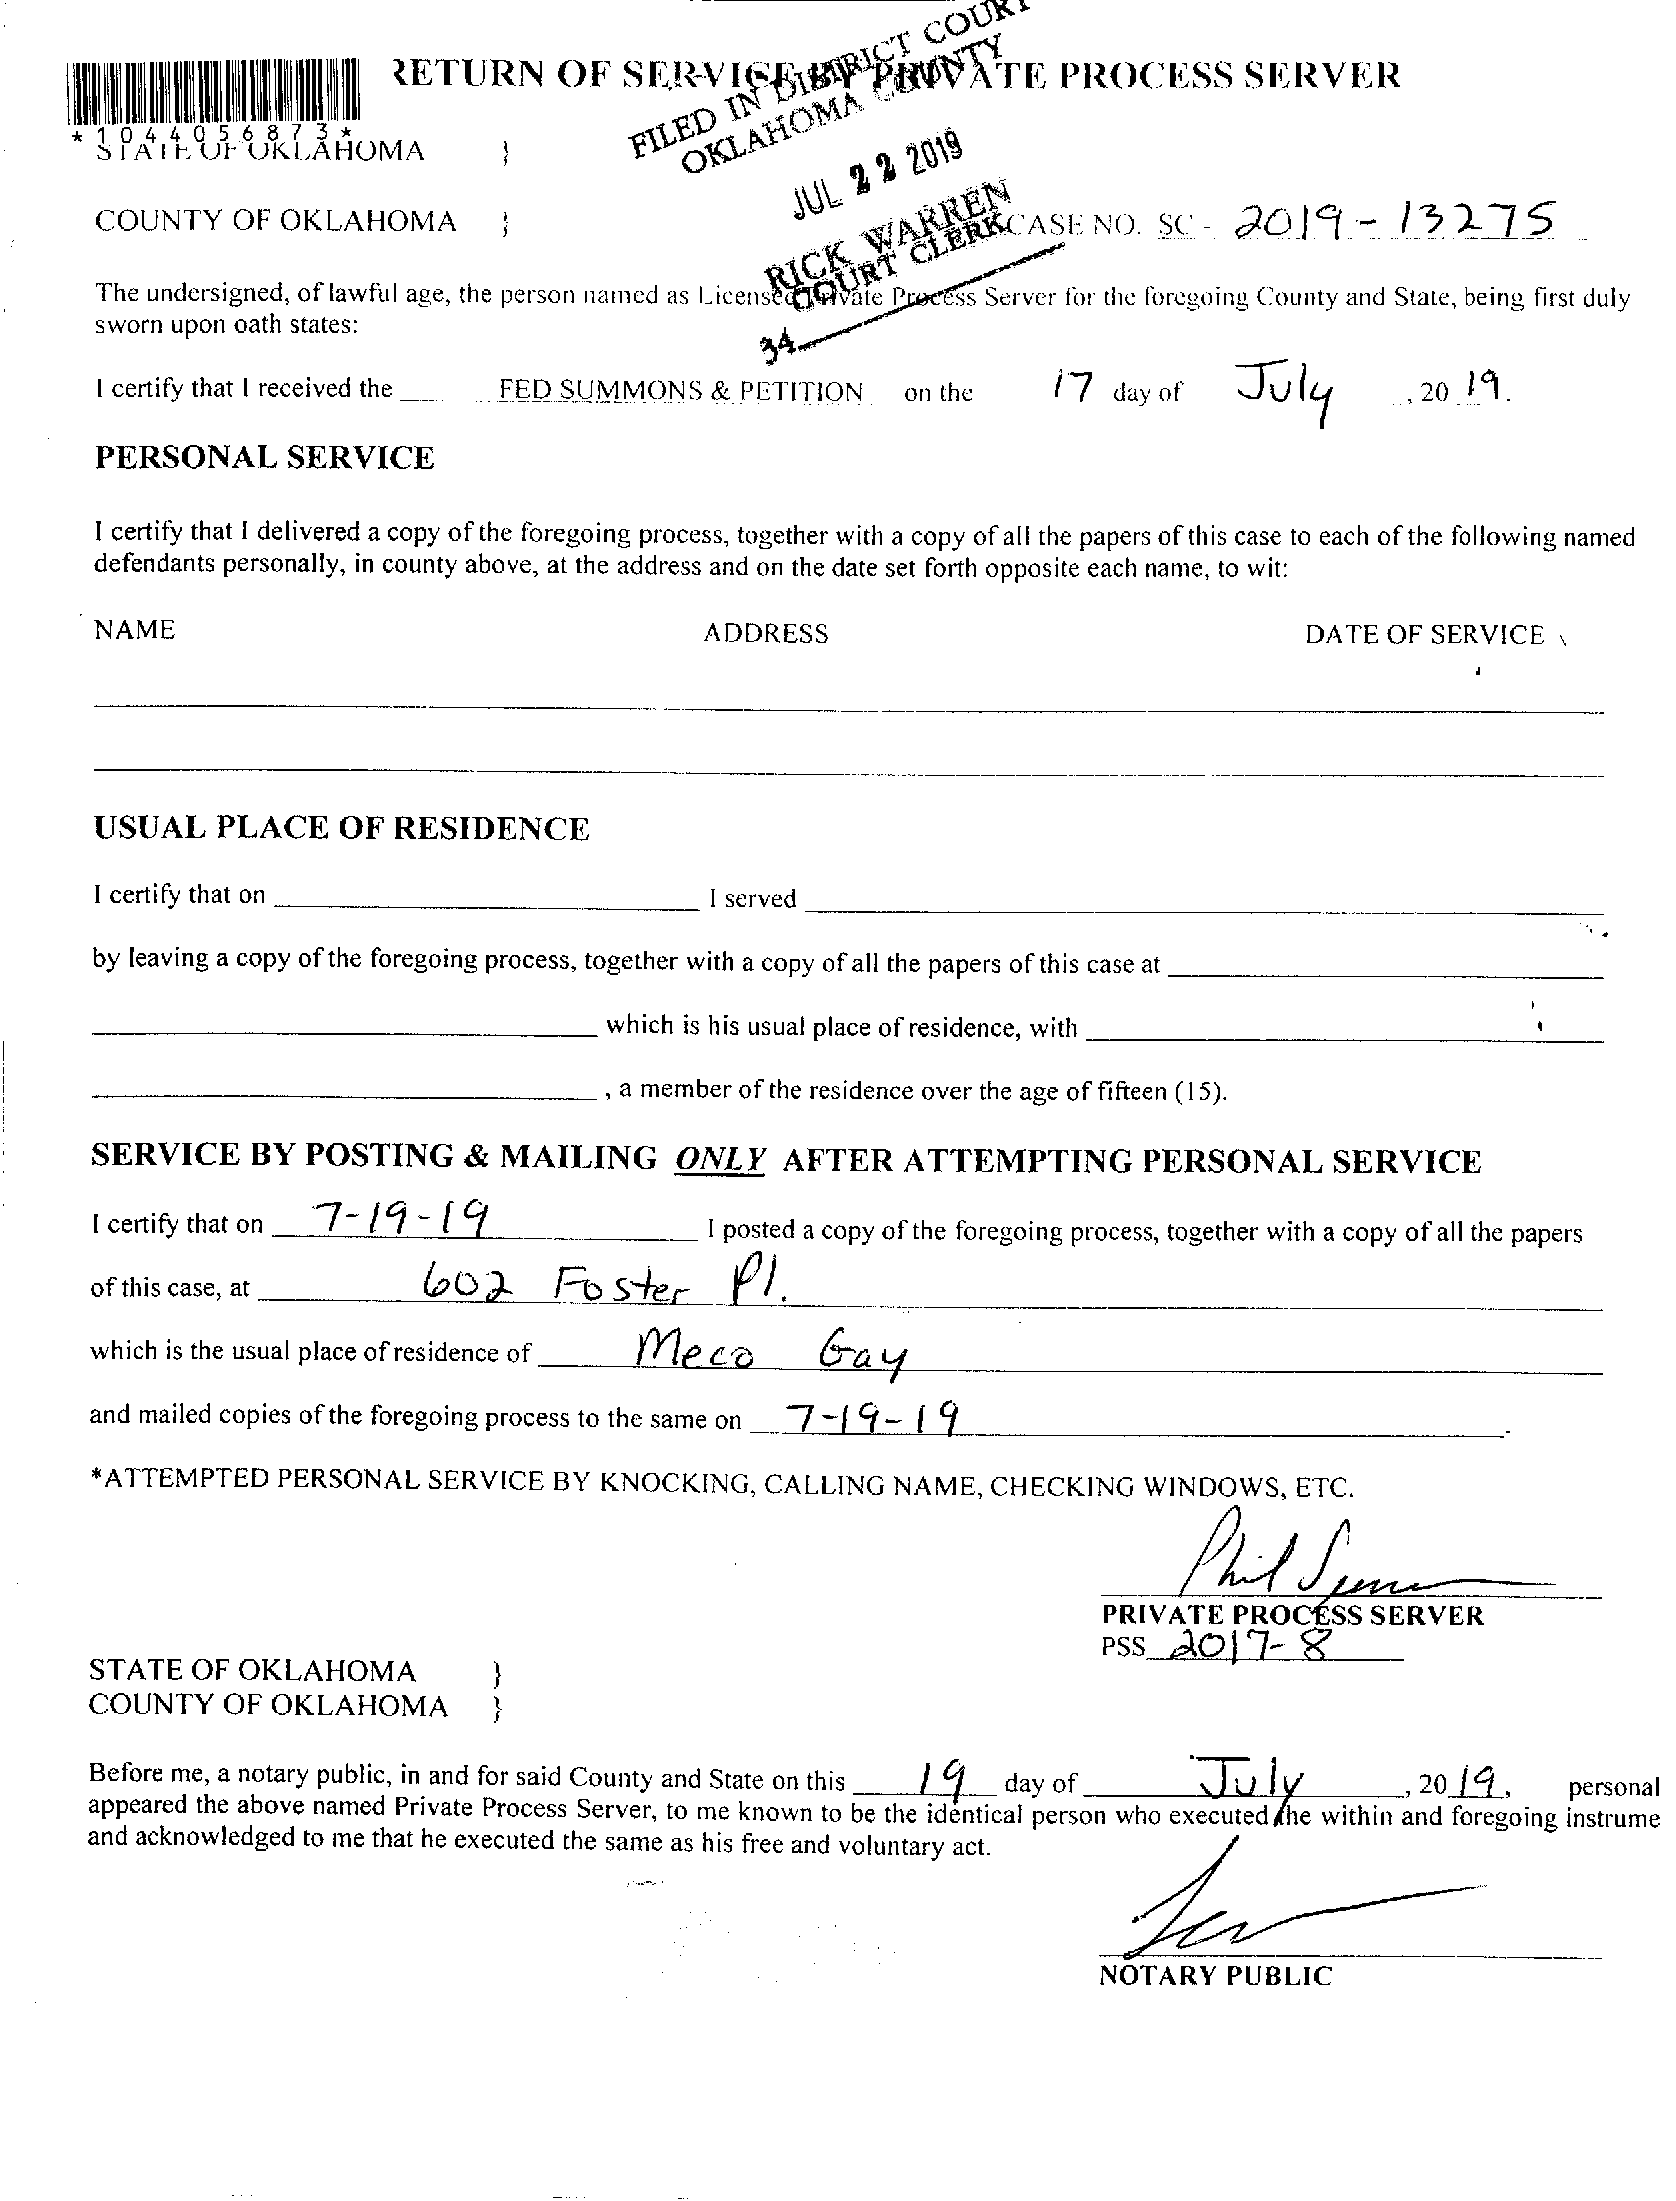 RETURN OF SERVICE BY PRIVATE PROCESS SERVER
FILED IN DISTRICT COURT
OKLAHOMA COUNTY
JUL 22 2019
RICK WARREN
COURT CLERK
34
*1044056873*
STATE OF OKLAHOMA }
COUNTY OF OKLAHOMA } CASE NO. SC - 2019-13275
The undersigned, of lawful age, the person named as Licensed Private Process Server for the foregoing County and State, being first duly
sworn upon oath states:
I certify that I received the FED SUMMONS & PETITION on the 17 day of July , 20 19.
PERSONAL SERVICE
I certify that I delivered a copy of the foregoing process, together with a copy of all the papers of this case to each of the following named
defendants personally, in county above, at the address and on the date set forth opposite each name, to wit:
NAME ADDRESS DATE OF SERVICE
USUAL PLACE OF RESIDENCE
I certify that on I served
by leaving a copy of the foregoing process, together with a copy of all the papers of this case at
which is his usual place of residence, with
, a member of the residence over the age of fifteen (15).
SERVICE BY POSTING & MAILING ONLY AFTER ATTEMPTING PERSONAL SERVICE
I certify that on 7-19-19 I posted a copy of the foregoing process, together with a copy of all the papers
of this case, at 602 Foster Pl.
which is the usual place of residence of Meco Gay
and mailed copies of the foregoing process to the same on 7-19-19
*ATTEMPTED PERSONAL SERVICE BY KNOCKING, CALLING NAME, CHECKING WINDOWS, ETC.
PRIVATE PROCESS SERVER
PSS 2017-8
STATE OF OKLAHOMA }
COUNTY OF OKLAHOMA }
Before me, a notary public, in and for said County and State on this 19 day of July , 20 19, personal
appeared the above named Private Process Server, to me known to be the identical person who executed the within and foregoing instrume
and acknowledged to me that he executed the same as his free and voluntary act.
NOTARY PUBLIC